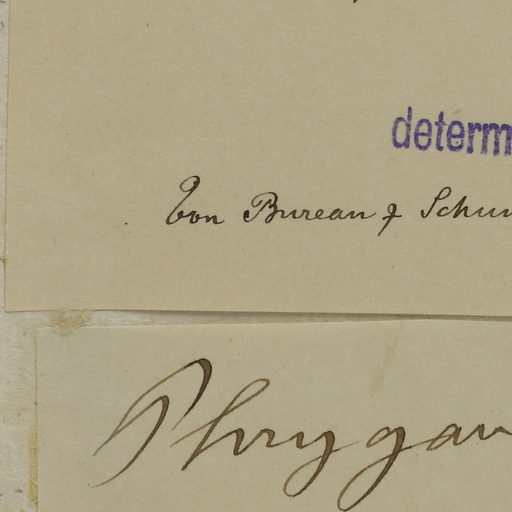 determ
Von Bureau & Schum
Phrygan